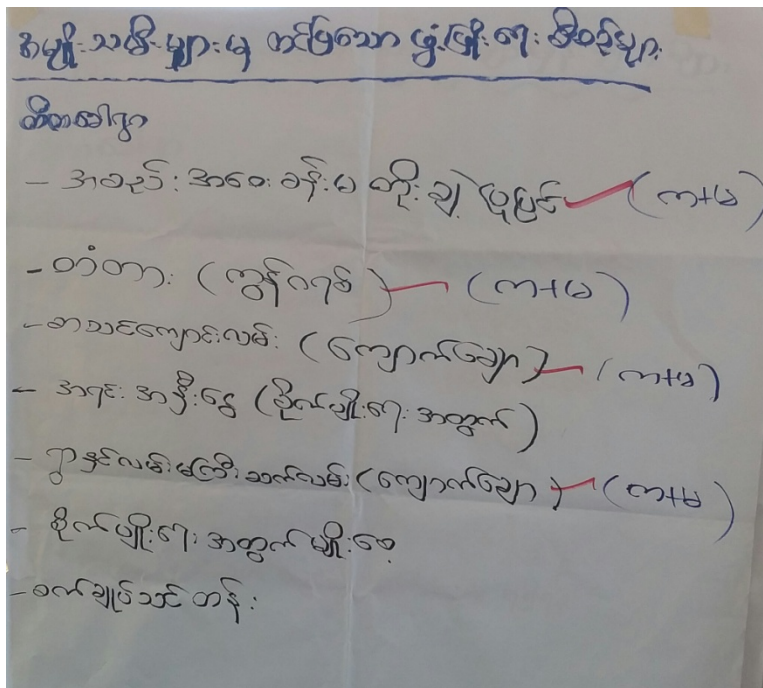 အမျိုးသမီးများမှ တင်ပြသော ဖွံ့ဖြိုးရေး စီစဉ်များ
- အစည်းအဝေးခန်းမ တိုးချဲ့ ပြုပြင် (က+မ)
- တံတား (ကွန်ကရစ်) (က+မ)
- စာသင်ကျောင်းလမ်း (ကျောက်ချော) (က+မ)
- အရင်းအနှီးငွေ (စိုက်ပျိုးရေး အတွက်)
- ရွာနှင့်လမ်းမကြီးဆက်လမ်း (ကျောက်ချော) (က+မ)
- စိုက်ပျိုးရေး အတွက် မျိုးစေ့
- စက်ချုပ်သင်တန်း